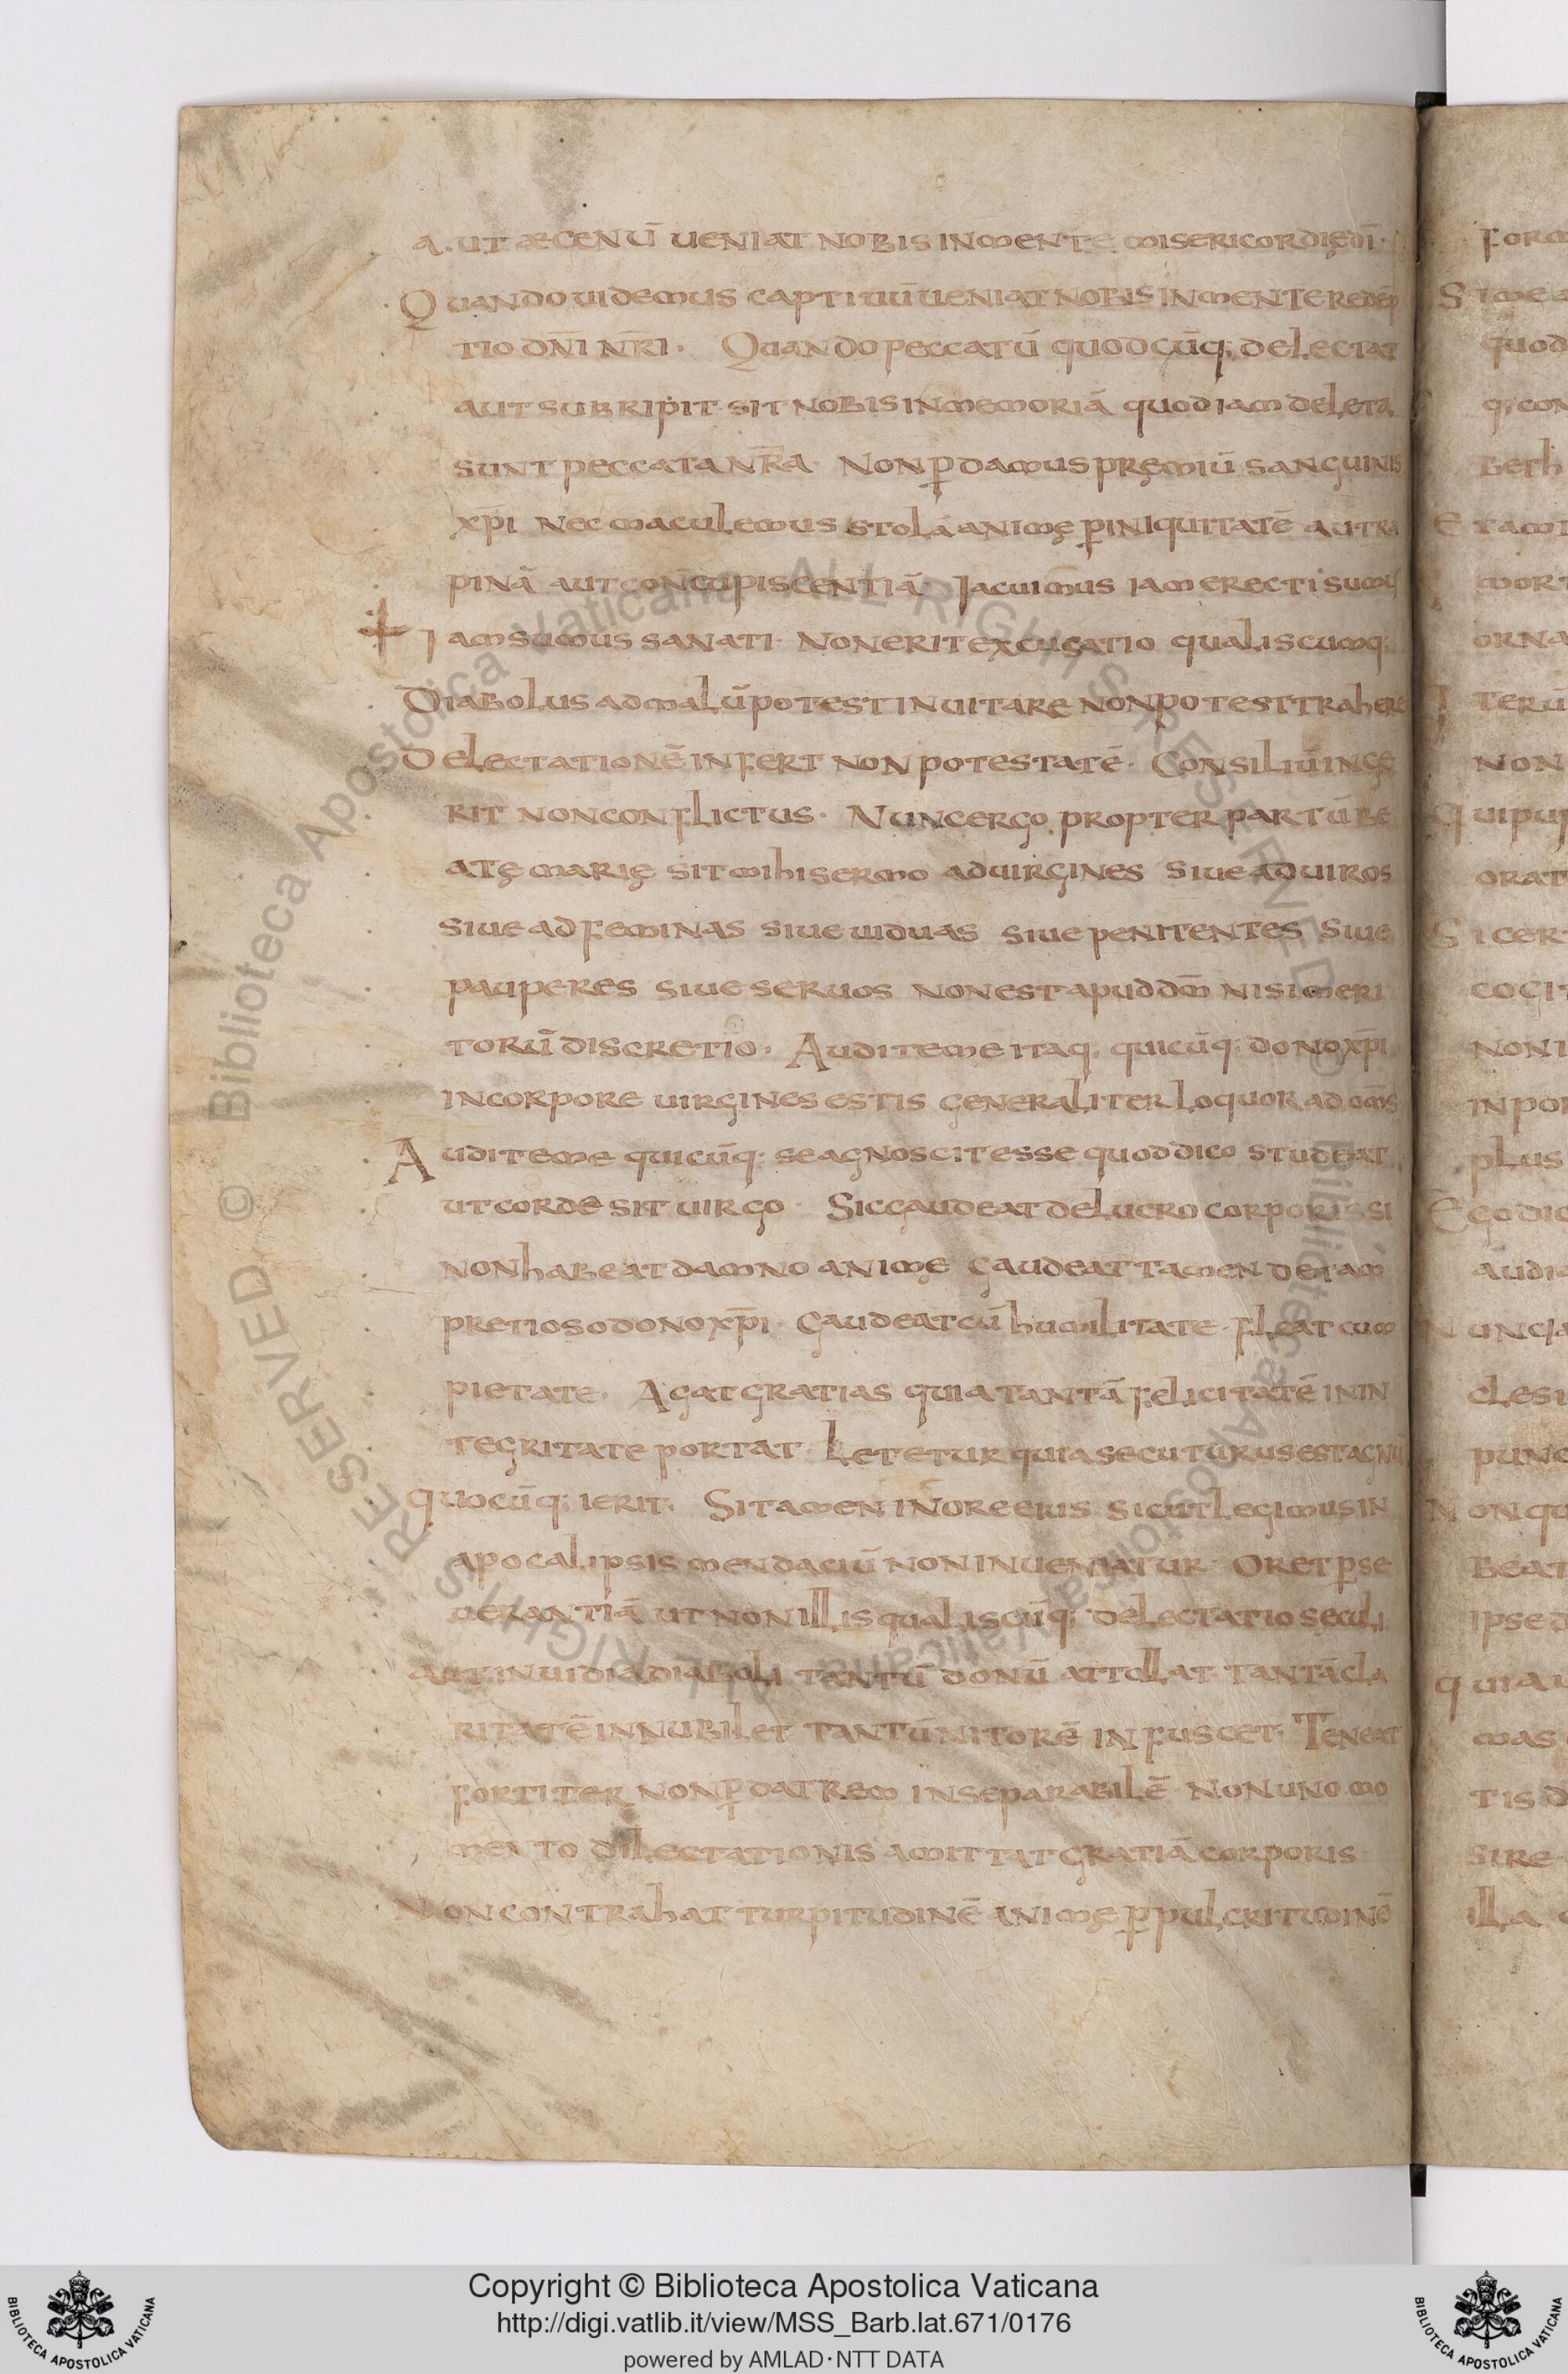 A. UT ÆCENŪ UENIAT NOBIS IN MENTE MISERICORDIĘ DĪ·
QUANDO UIDEMUS CAPTIUŪ UENIAT NOBIS IN MENTE REDĒP
TIO DN̄I NR̄I· QUANDO PECCATŪ QUODCŪQ; DELECTAT
AUT SUBRIPIT· SIT NOBIS IN MEMORIĀ QUOD IAM DELETA
SUNT PECCATA NR̄A· NON P̱DAMUS PRĘMIŪ SANGUINIS
XP̄I NEC MACULEMUS STOLĀ ANIMĘ P̱ INIQUITATĒ AUT RA
PINĀ AUT CONCUPISCENTIĀ· IACUIMUS IAM ERECTI SUMUS
IAM SUMUS SANATI· NON ERIT EXCUSATIO QUALISCUMQ;
DIABOLUS AD MALŪ POTEST INUITARE NON POTEST TRAHERE
DELECTATIONĒ INFERT NON POTESTATĒ· CONSILIŪ INGE
RIT NON CONFLICTUS· NUNC ERGO PROPTER PARTŪ BE
ATĘ MARIĘ SIT MIHI SERMO AD UIRGINES SIUE AD UIROS
SIUE AD FEMINAS SIUE UIDUAS SIUE PENITENTES SIUE
PAUPERES SIUE SERUOS NON EST APUD DM̄ NISI MERI
TORŪ DISCRETIO· AUDITE ME ITAQ; QUICŪQ; DONO XP̄I
IN CORPORE UIRGINES ESTIS GENERALITER LOQUOR AD OM̄S
AUDITE ME QUICŪQ; SE AGNOSCIT ESSE QUOD DICO STUDEAT
UT CORDE SIT UIRGO· SIC GAUDEAT DE LUCRO CORPORIS SI
NON HABEAT DAMNO ANIMĘ GAUDEAT TAMEN DE TAM
PRETIOSO DONO XP̄I· GAUDEAT CŪ HUMILITATE· FLEAT CUM
PIETATE· AGAT GRATIAS QUIA TANTĀ FELICITATĒ IN IN
TEGRITATE PORTAT· LETETUR QUIA SECUTURUS EST AGNŪ
QUOCŪQ; IERIT· SI TAMEN IN ORE EIUS SICUT LEGIMUS IN
APOCALIPSIS MENDACIŪ NON INUENIATUR· ORET P̱SE
UERANTIĀ UT NON ILLIS QUALISCŪQ; DELECTATIO SECULI
AUT INUIDIA DIABOLI TANTŪ DONŪ ATTOLLAT· TANTĀ CLA
RITATĒ INNUBILET TANTŪ NITORĒ INFUSCET· TENEAT
FORTITER NON P̱DAT REM INSEPARABILĒ NON UNO MO
MENTO DILECTATIONIS AMITTAT GRATIĀ CORPORIS
NON CONTRAHAT TURPITUDINĒ ANIMĘ P̱ PULCRITUDINĒ
Copyright © Biblioteca Apostolica Vaticana
http://digi.vatlib.it/view/MSS_Barb.lat.671/0176
powered by AMLAD·NTT DATA